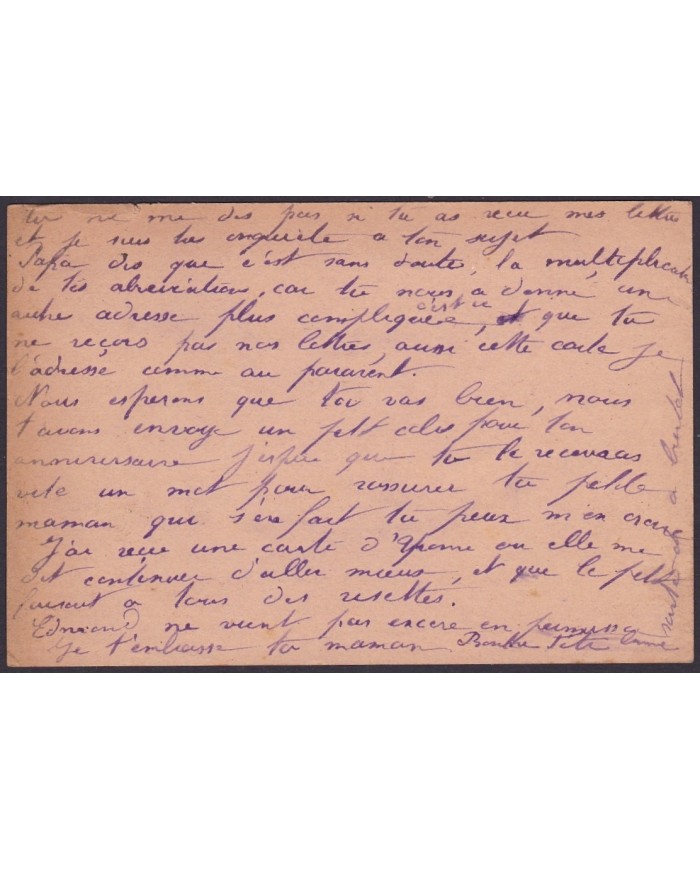 tu ne me dis pas si tu as recu mes lettres
et je suis tres inquiete a ton sujet
Papa dis que c'est sans doute la multiplicate
de tes abreviations, car tu nous a donné un
autre adresse plus compliquée, et que tu
ne reçois pas nos lettres, aussi cette carte je
l'adresse comme au paravent.
Nous esperons que toi vas bien, nous
t'avons envoye un petit colis pour ton
anniversaire j'espere que tu le recevras
vite un mot pour rassurer ta petite
maman qui s'ere fait tu peux m'en croire
J'ai recu une carte d'Yvonne ou elle me
dit continuer d'aller mieux, et que le petit
faisait a tous des risettes.
Edmond ne vient pas encore en permission
Je t'embrasse ta maman Bonne